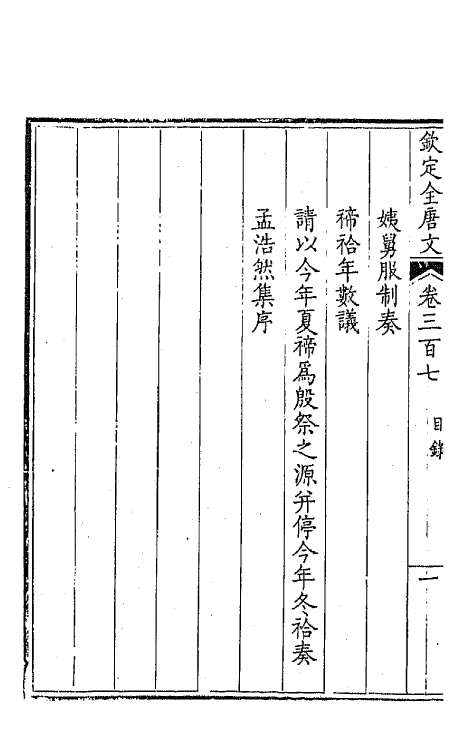 欽定全唐文 卷三百七 目錄 一
姨舅服制奏
禘祫年數議
請以今年夏禘爲殷祭之源并停今年冬祫奏
孟浩然集序